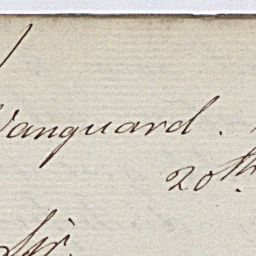 Vanguard.
20th
Sir